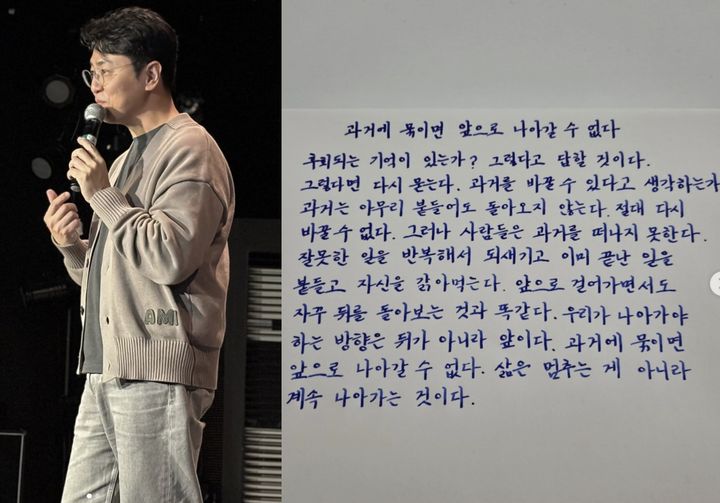 과거에 묶이면 앞으로 나아갈 수 없다
후회되는 기억이 있는가? 그렇다고 답할 것이다.
그렇다면 다시 묻는다. 과거를 바꿀 수 있다고 생각하는가
과거는 아무리 붙들어도 돌아오지 않는다. 절대 다시
바꿀 수 없다. 그러나 사람들은 과거를 떠나지 못한다.
잘못한 일을 반복해서 되새기고 이미 끝난 일을
붙들고 자신을 갉아먹는다. 앞으로 걸어가면서도
자꾸 뒤를 돌아보는 것과 똑같다. 우리가 나아가야
하는 방향은 뒤가 아니라 앞이다. 과거에 묶이면
앞으로 나아갈 수 없다. 삶은 멈추는 게 아니라
계속 나아가는 것이다.
AMI